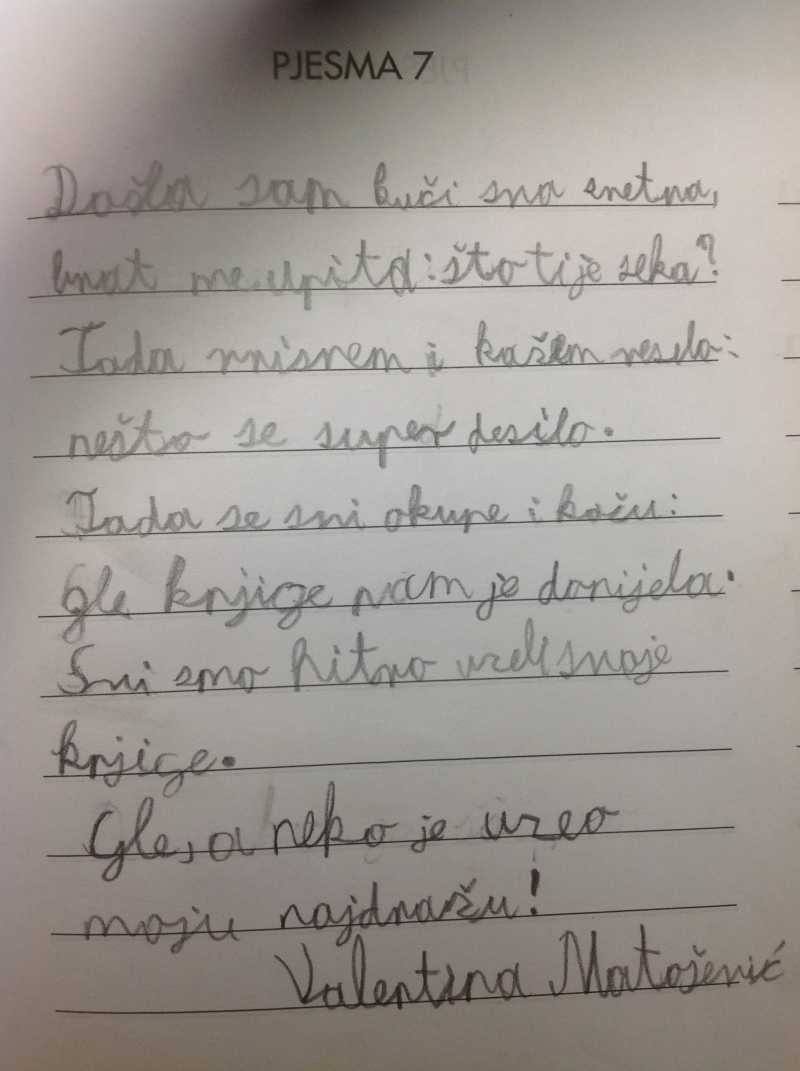 PJESMA 7
Došla sam kuči sva sretna,
brat me upita: što ti je seka?
Tada vrisnem i kažem veselo:
nešto se super desilo.
Tada se svi okupe i kažu:
Gle knjige nam je donijela.
Svi smo hitno uzeli svoje
knjige.
Gle, a neko je uzeo
moju najdražu!
Valentina Matošević